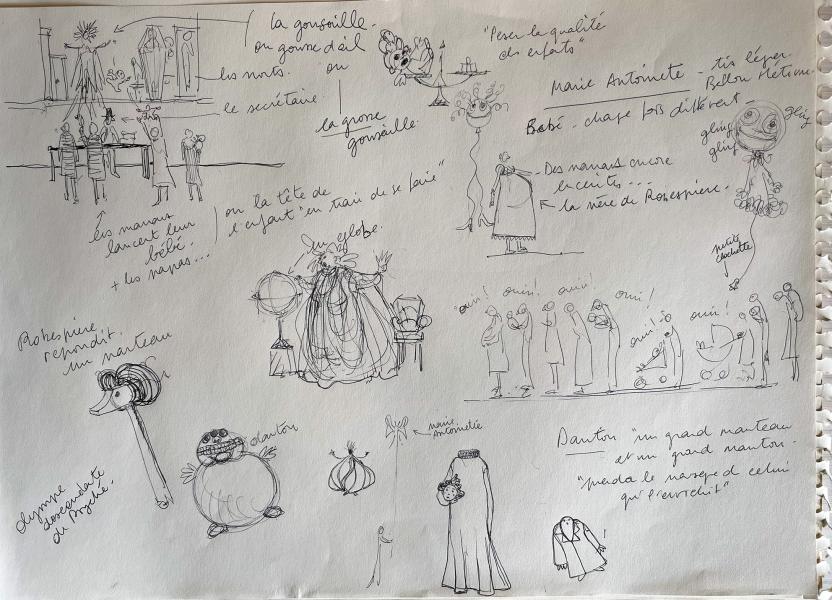 la gousaille.
ou gousse d'ail
ou
la grosse
gousaille.
les morts.
le secrétaire
les mamans
lancent leur
bébé.
+ les papas...
ou la tête de
l'enfant "en train de se faire"
un globe.
"Peser la qualité
des enfants"
Marie Antoinete
Bébé - chaque fois différent -
gling
gling
gling
petite
clochette
- Des mamans encore
enceintes...
la mère de Robespierre.
oui! oui! oui! oui!
oui! oui!
Robespierre
répondit.
un marteau
Olympe
descendante
de Psyché.
danton
marie
Antoinette
Danton "un grand manteau
et un grand menton.
qui s'enrichit"